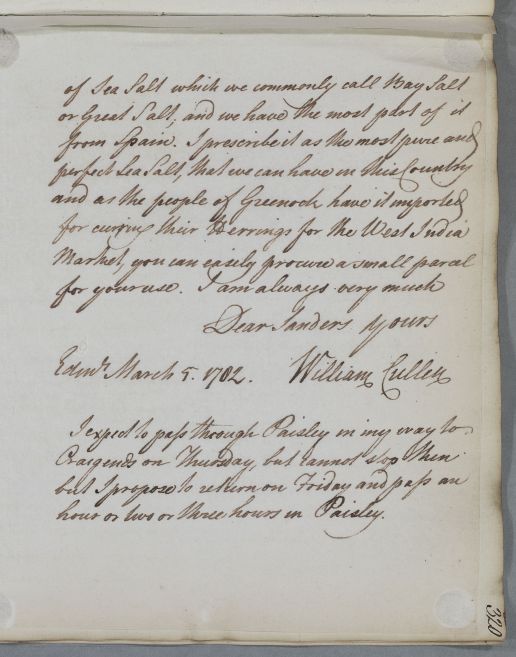 of Sea Salt which we commonly call Bay Salt
or Great Salt, and we have the most part of it
from Spain. I prescribe it as the most pure and
perfect Sea Salt, that we can have in this Country
and as the people of Greenock have it imported
for curing their Herrings for the West India
Market, you can easily procure a small parcel
for your use. I am always very much
Dear Sanders Yours
Edinr. March 5. 1782. William Cullen
I expect to pass through Paisley in my way to
Craigends on Thursday, but cannot stop then
but I propose to return on Friday and pass an
hour or two or three hours in Paisley.
320